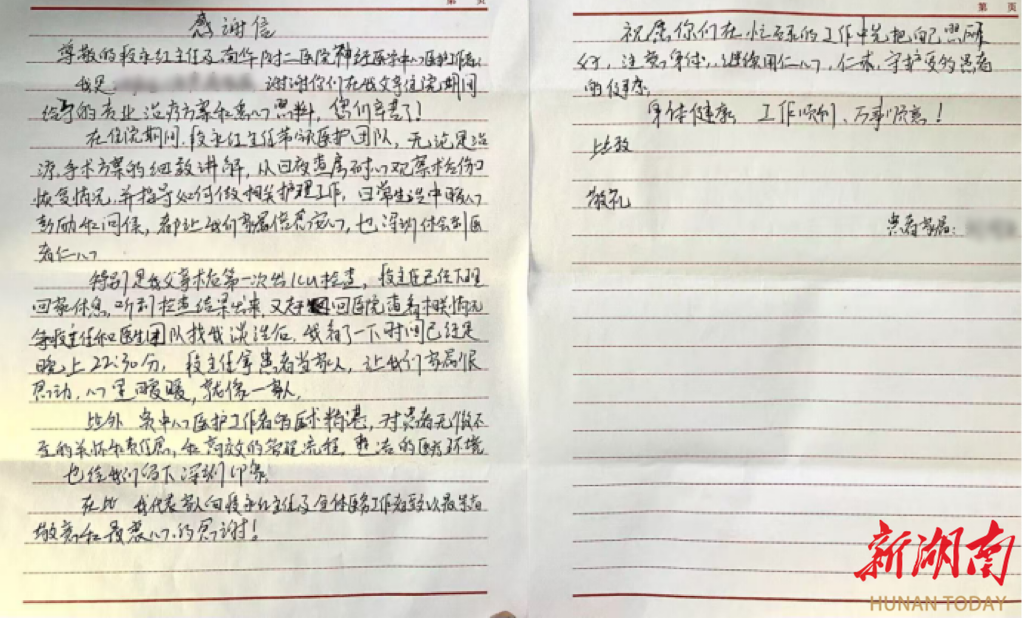 第 页
感谢信
尊敬的段永红主任及南华附二医院神经医学中心医护工作者:
我是 谢谢你们在我父亲住院期间
给予的专业治疗方案和悉心照料,你们辛苦了!
在住院期间,段永红主任带领医护团队,无论是治
疗、手术方案的细致讲解,从日夜查房耐心观察术后伤口
恢复情况,并指导如何做相关护理工作,日常生活中暖心
鼓励和问候,都让我们家属倍感安心,也深刻体会到医
者仁心
特别是我父亲术后第一次出ICU检查,段主任已经下班
回家休息,听到检查结果出来,又赶回医院查看相关情况
等段主任和医生团队找我谈话后,我看了一下时间已经是
晚上22:30分,段主任拿患者当家人,让我们家属很
感动,心里暖暖,就像一家人。
此外 贵中心医护工作者的医术精湛,对患者无微不
至的关怀和责任感,和高效的管理流程,整洁的医疗环境
也给我们留下深刻印象。
在此 我代表家人向段永红主任及全体医务工作者致以最崇高
敬意和最衷心的感谢!
第 页
祝愿你们在忙碌的工作中先把自己照顾
好,注意身体,继续用仁心、仁术,守护更多患者
的健康。
身体健康 工作顺利、万事顺意!
此致
敬礼
患者家属:
新湖南
HUNAN TODAY